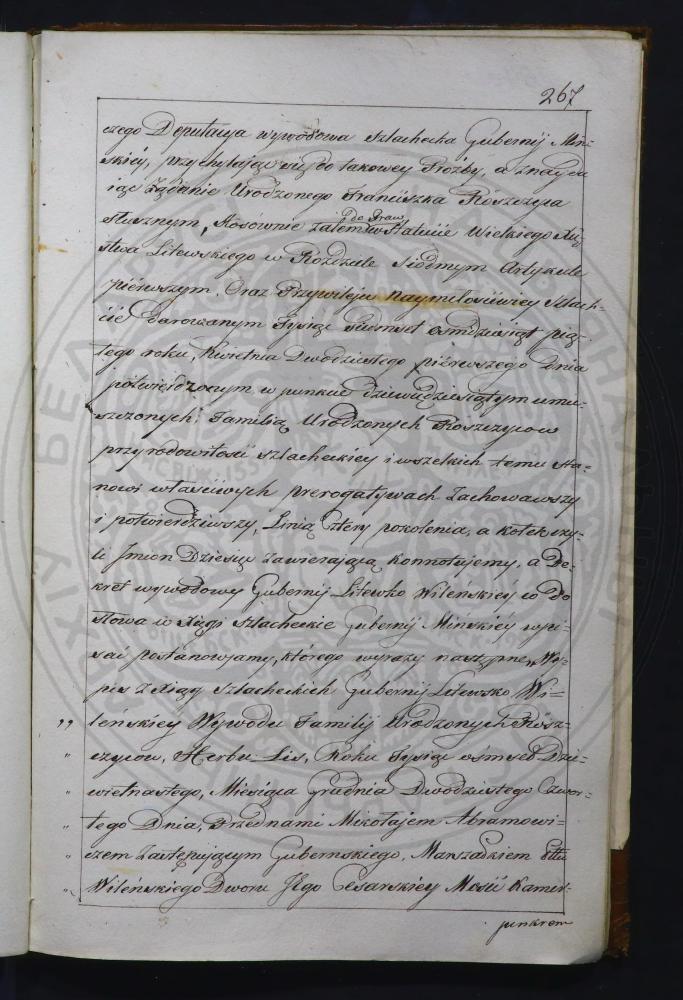 267
czego Deputacya wywodowa szlachecka Gubernij Miń-
skiéy, przychylaiąc się do takowey Proźby, a znaydu
iąc żądanie Urodzonego Franciszka Rószczyca
słusznym, stósównie zatem w Statucie Wielkiego Xię
do Praw
stwa Litewskiego w Rozdziale Siódmym Artykule
pierwszym. Oraz Przywileju Naymiłościwiey Szlach-
cie darowanym Tysiąc siedmset osmdziesiąt pią-
tego roku, Kwietnia Dwódziestego pierwszego Dnia
potwierdzonym w punkcie dziewiędziesiątym umie-
szczonych; Familią Urodzonych Roszczyców
przy rodowitości szlacheckiéy i wszelkich temu sta-
nowi właściwych prerogatywach zachowawszy
i potwierdziwszy, Linią cztery pokolenia, a kolek czy-
li Jmion Dziesięć zawierającą konnotujemy, a De-
kret wywodowy Gubernij Litewsko Wileńskiéy co do
słowa w Xięgi szlacheckie Gubernij Mińskiéy wpi-
sać postanowjamy, którego wyrazy następne, Wy-
pis z Xiąg szlacheckich Gubernij Litewsko Wi-
„ leńskiey Wywodu Familij Urodzonych Rósz-
„ czyców, Herbu Lis, Roku Tysiąc ośmset Dzie-
„ wietnastego, Miesiąca Grudnia Dwódziestego Czwar-
„ tego Dnia, Przed nami Mikołajem Abramowi-
„ czem Zastępującym Gubernskiego, Marszałkiem Pttu
„ Wileńskiego Dworu Jego Cesarskiéy Mości Kamer-
junkrem